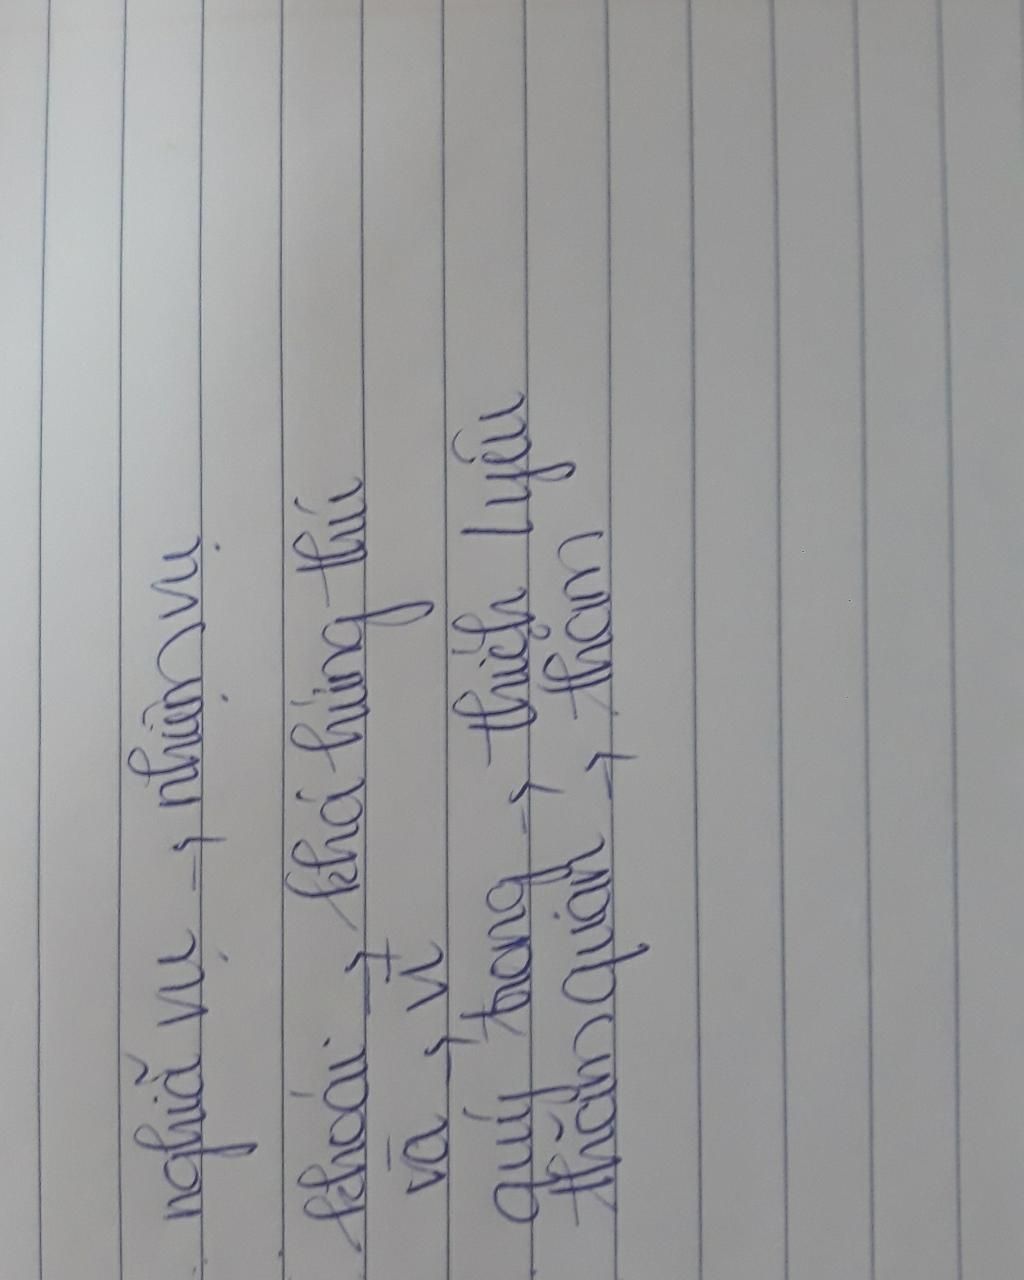 nghĩa vụ → nhiệm vụ
khoái → khá hứng thú
và → vì
quý trọng → thích | yêu
thăn quan → thăm